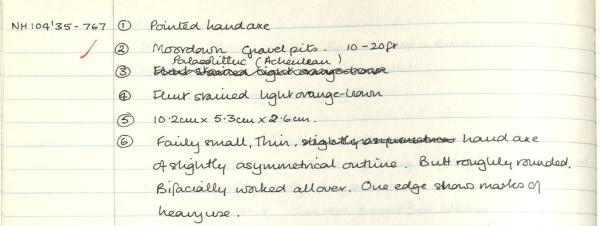 NH104'35-767 ① Pointed handaxe
② Moordown Gravel pits. 10-20ft
Palaeolithic (Acheulean)
③ Flint stained light orange-brown
④ Flint stained light orange-brown
⑤ 10.2cm x 5.3cm x 2.6cm.
⑥ Fairly small, Thin, slightly asymmetrical handaxe
of slightly asymmetrical outline. Butt roughly rounded.
Bifacially worked all over. One edge shows marks of
heavy use.